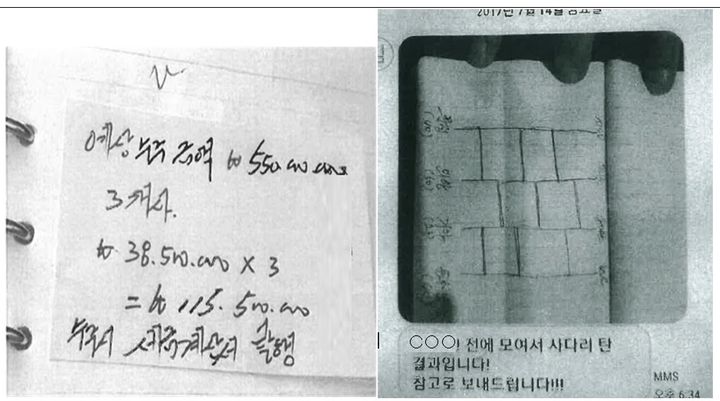 예상 수주 금액 ₩ 550.000.000
3개사.
₩ 38.500.000 X 3
= ₩ 115.500.000
수주시 세금계산서 출행
2017년 7월 14일 금요일
○○○! 전에 모여서 사다리 탄
결과입니다!
참고로 보내드립니다!!!
MMS
오후 6:34